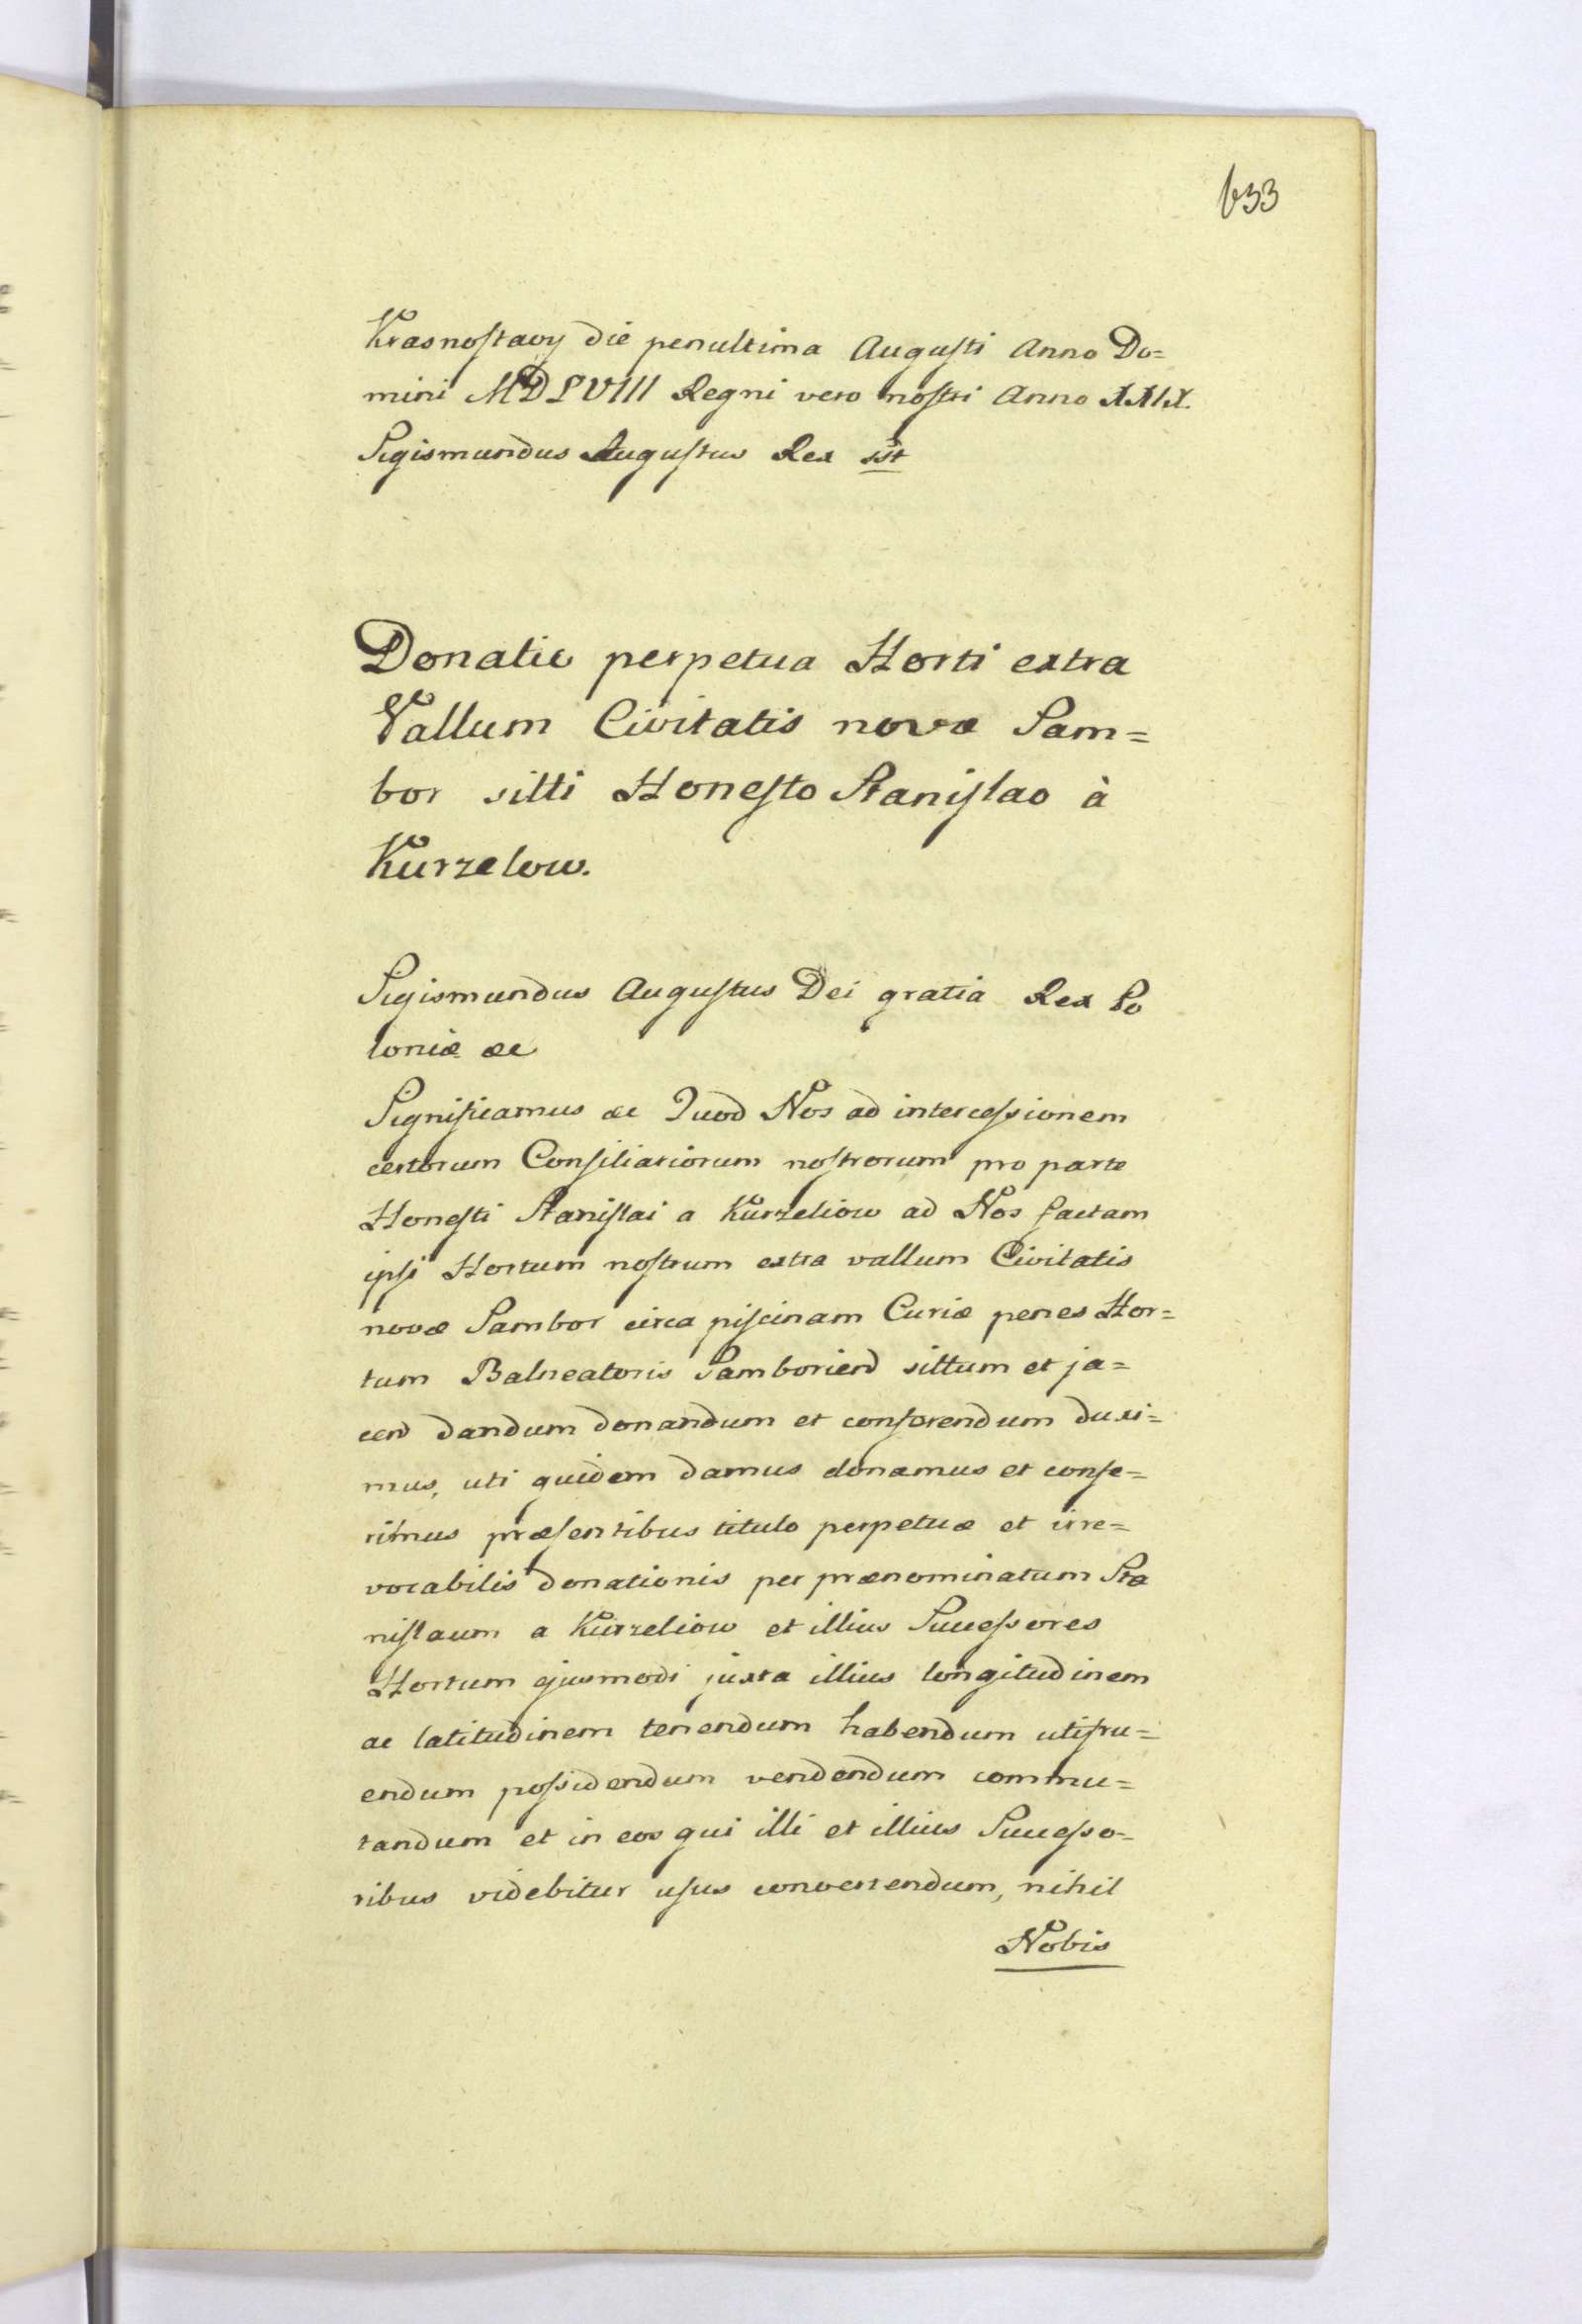 633
Krasnostavy die penultima Augusti Anno Do=
mini MDLVIII Regni vero nostri Anno XXIX.
Sigismundus Augustus Rex sst
Donatio perpetua Horti extra
Vallum Civitatis novæ Sam=
bor sitti Honesto Stanislao à
Kurzelow.
Sigismundus Augustus Dei gratia Rex Po
loniæ &c
Significamus &c Quod Nos ad intercessionem
certorum Consiliariorum nostrorum pro parte
Honesti Stanislai a Kurzeliow ad Nos factam
ipsi Hortum nostrum extra vallum Civitatis
novæ Sambor circa piscinam Curiæ penes Hor=
tum Balneatoris Samborien̄ sittum et ja=
cen̄ dandum donandum et conferendum duxi=
mus, uti quidem damus donamus et confe=
rimus præsentibus titulo perpetuæ et irre=
vocabilis donationis per prænominatum Sta
nislaum a Kurzeliow et illius Successores
Hortum ejusmodi juxta illius longitudinem
ac latitudinem tenendum habendum utifru=
endum possidendum vendendum commu=
tandum et in eos qui illi et illius Successo=
ribus videbitur usus convertendum, nihil
Nobis